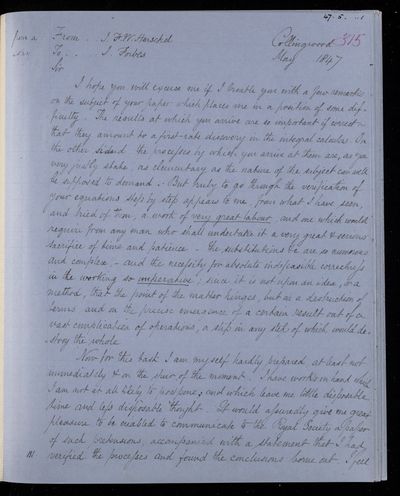 47. 5. 1
From a From . J. F. W. Herschel
To . . J. Forbes
Collingwood 315
Sir May 1847
I hope you will excuse me if I trouble you with a few remarks
on the subject of your paper which places me in a position of some dif-
ficulty. The results at which you arrive are so important if correct
that they amount to a first-rate discovery in the integral calculus. On
the other hand the processes by which you arrive at them are, as you
very justly state, as elementary as the nature of the subject can well
be supposed to demand. But truly to go through the verification of
your equations step by step appears to me from what I have seen,
and tried of them, a work of very great labour, and one which would
require from any man who shall undertake it a very great & serious
sacrifice of time and patience. The substitutions &c are so numerous
and complex, - and the necessity for absolute indefeasible correctness
in the working so imperative; since it is not upon an idea, or a
method, that the point of the matter hinges, but on a destruction of
terms and on the precise emergence of a certain result out of a
vast complication of operations, a slip in any step of which would de-
stroy the whole
Now for this task I am myself hardly prepared at least not
immediately & on the spur of the moment. I have works on hand which
I am not at all likely to postpone, and which leave me little disposable
time and less disposable thought. It would assuredly give me great
pleasure to be enabled to communicate to the Royal Society a paper
of such pretensions, accompanied with a statement that I had
verified the processes and found the conclusions borne out. I feel